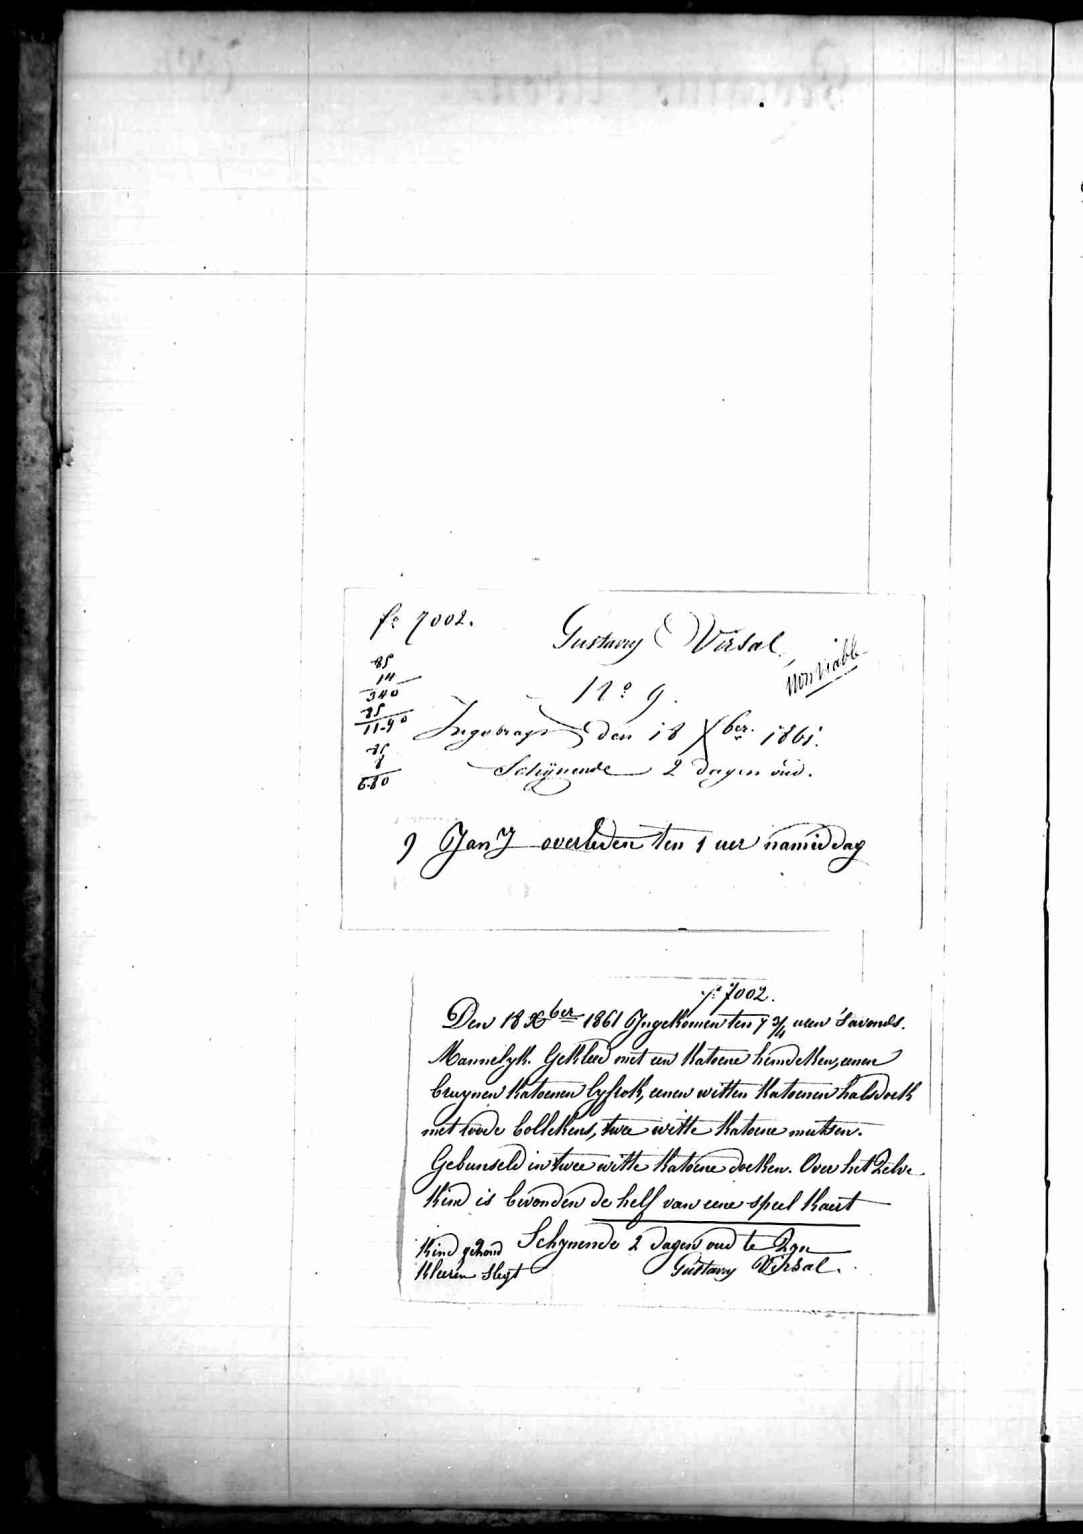 f° 7002.
Gustavy Virsal
Non viable
85
14
340
85
11-90
N° 9.
Ingebragt den 18 Xber 1861.
85
8
6-80
Schijnende 2 dagen oud.
9 Jany overleden ten 1 uer namiddag
f° 7002.
Den 18 Xber 1861 Ingekomen ten 7 3/4 uren 's avonds.
Mannelyk. Gekleed met een katoene hemdeken, eenen
bruynen katoenen lyfrok, eenen witten katoenen halsdoek
met roode bollekens, twee witte katoene mutsen.
Gebunseld in twee witte katoene doeken. Over het zelve
kind is bevonden de helf van eene speel kaert
Schynende 2 dagen oud te zyn
Kind gezond
Kleeren slegt
Gustavy Virsal.